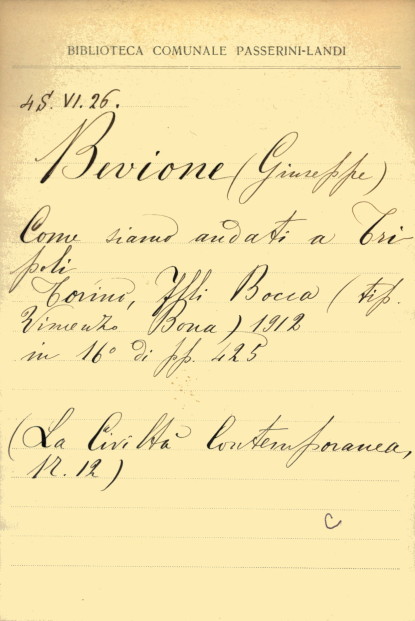 BIBLIOTECA COMUNALE PASSERINI-LANDI
4S. VI. 26.
Bevione (Giuseppe)
Come siamo andati a Tri
poli
Torino, Flli Bocca (tip.
Vincenzo Bona) 1912
in 16° di pp. 425
(La Civiltà Contemporanea,
N. 12)
C